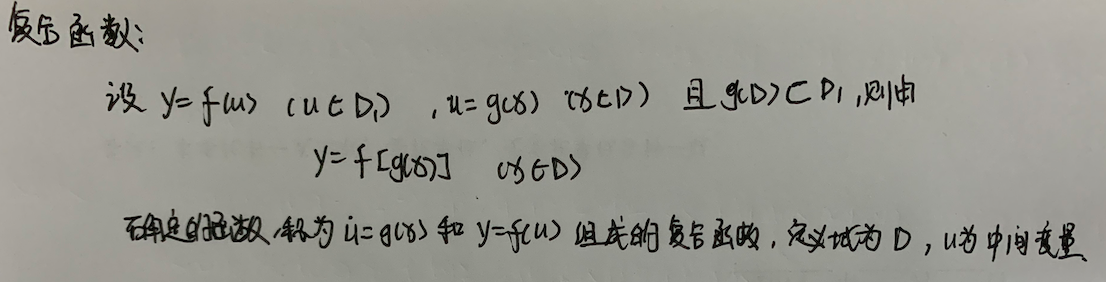 复合函数:
设 y=f(u) (u∈D₁), u=g(x) (x∈D) 且 g(D)⊂D₁,则由
y=f[g(x)] (x∈D)
确定的函数,称为 u=g(x) 和 y=f(u) 组成的复合函数,定义域为 D,u为中间变量.